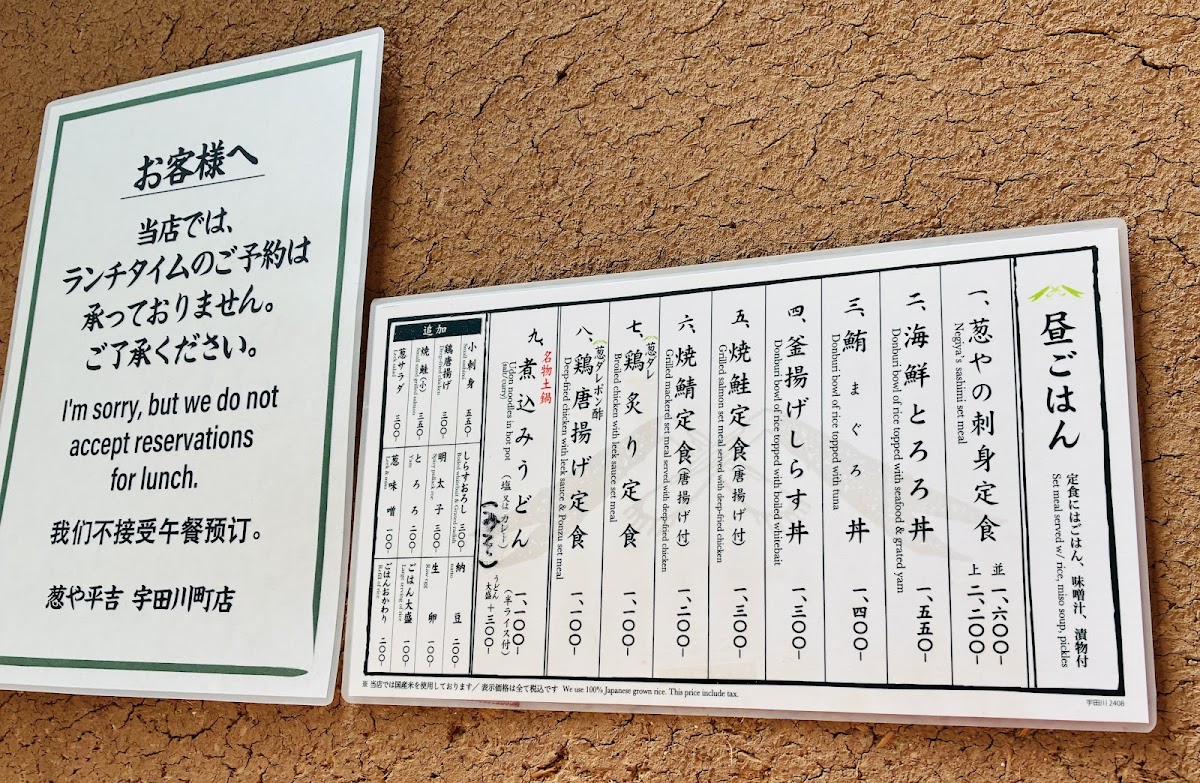 お客様へ
当店では、
ランチタイムのご予約は
承っておりません。
ご了承ください。
I'm sorry, but we do not
accept reservations
for lunch.
我们不接受午餐预订。
葱や平吉 宇田川町店
昼ごはん
定食にはごはん、味噌汁、漬物付
Set meal served w/ rice, miso soup, pickles
一、葱やの刺身定食 並 一、六〇〇-
上 二、二〇〇-
Negiya's sashimi set meal
二、海鮮とろろ丼 一、五五〇-
Donburi bowl of rice topped with seafood & grated yam
三、鮪まぐろ丼 一、四〇〇-
Donburi bowl of rice topped with tuna
四、釜揚げしらす丼 一、三〇〇-
Donburi bowl of rice topped with boiled whitebait
五、焼鮭定食(唐揚げ付) 一、三〇〇-
Grilled salmon set meal served with deep-fried chicken
六、焼鯖定食(唐揚げ付) 一、二〇〇-
Grilled mackerel set meal served with deep-fried chicken
葱ダレ
七、鶏炙り定食 一、一〇〇-
Broiled chicken with leek sauce set meal
葱ダレポン酢
八、鶏唐揚げ定食 一、一〇〇-
Deep-fried chicken with leek sauce & Ponzu set meal
名物土鍋
九、煮込みうどん (塩又はカレー) 一、一〇〇- (半ライス付)
Udon noodles in hot pot
(salt/curry)
うどん大盛 +三〇〇-
追加
小刺身 五五〇-
Small sashimi
鶏唐揚げ 三〇〇-
Deep-fried chicken
焼鮭(小) 三五〇-
Small sized grilled salmon
葱サラダ 三〇〇-
Leek salad
しらすおろし 三〇〇-
Boiled whitebait & Grated radish
明太子 三〇〇-
Spicy pollack roe
とろろ 二〇〇-
Yam
葱味噌 一〇〇-
Leek & miso
納豆 二〇〇-
natto
生卵 一〇〇-
Raw egg
ごはん大盛 一〇〇-
Large serving of rice
ごはんおかわり 二〇〇-
Refill of rice
※ 当店では国産米を使用しております／表示価格は全て税込です We use 100% Japanese grown rice. This price include tax.
宇田川 2408